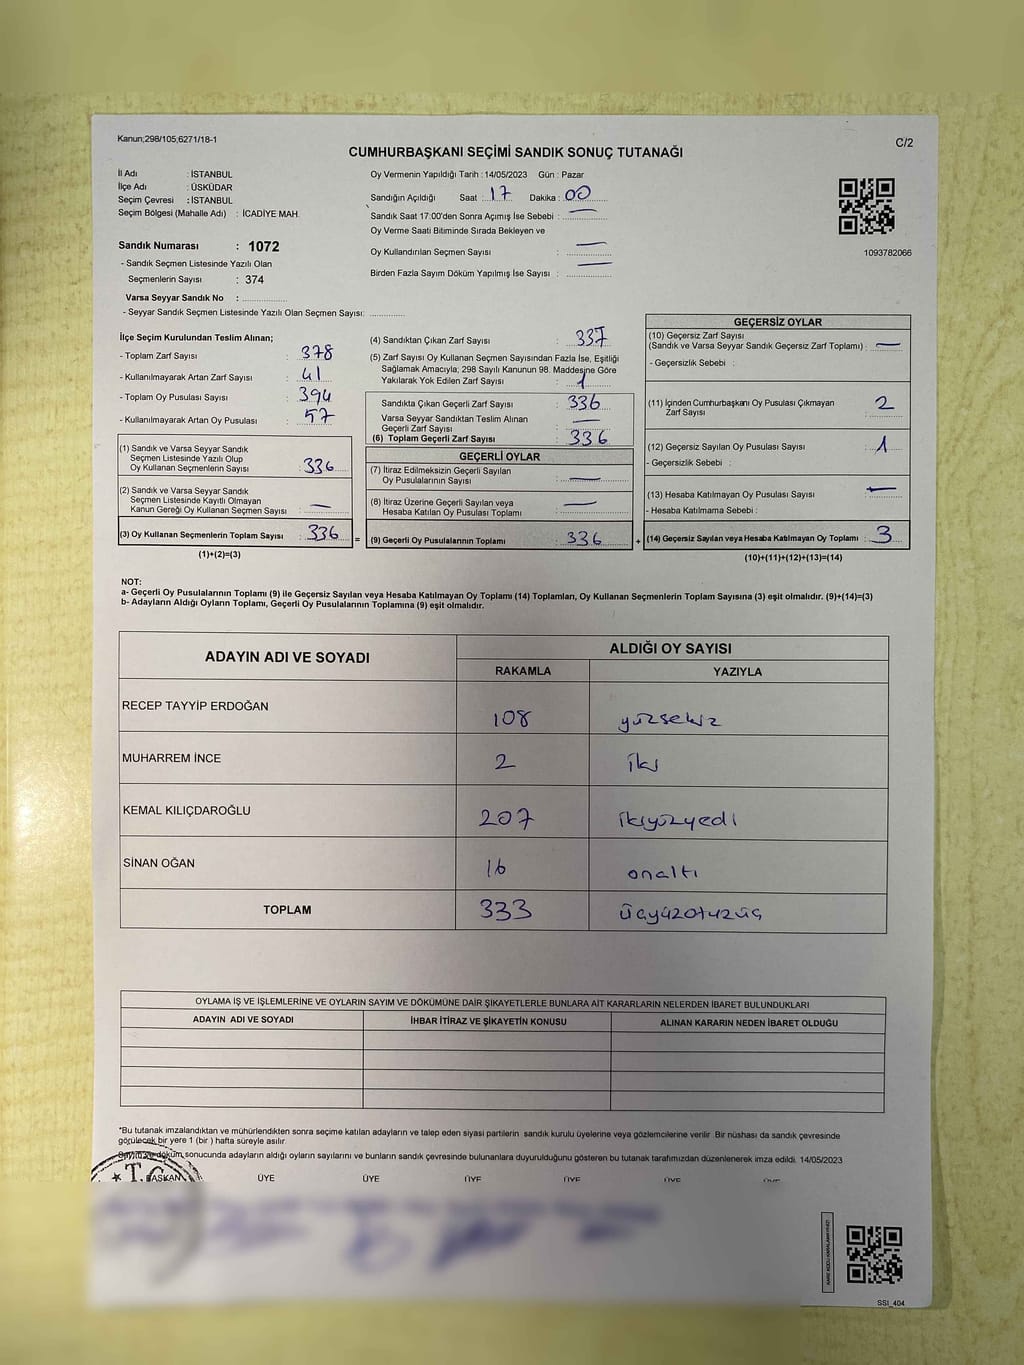 Kanun;298/105;6271/18-1
C/2
CUMHURBAŞKANI SEÇİMİ SANDIK SONUÇ TUTANAĞI
İl Adı : İSTANBUL
İlçe Adı : ÜSKÜDAR
Seçim Çevresi : İSTANBUL
Seçim Bölgesi (Mahalle Adı) : İCADİYE MAH.
Oy Vermenin Yapıldığı Tarih : 14/05/2023 Gün : Pazar
Sandığın Açıldığı Saat : 17 Dakika : 00
Sandık Saat 17:00'den Sonra Açımış İse Sebebi : —
Oy Verme Saati Bitiminde Sırada Bekleyen ve
Oy Kullandırılan Seçmen Sayısı : —
Birden Fazla Sayım Döküm Yapılmış İse Sayısı : —
1093782066
Sandık Numarası : 1072
- Sandık Seçmen Listesinde Yazılı Olan
Seçmenlerin Sayısı : 374
Varsa Seyyar Sandık No :
- Seyyar Sandık Seçmen Listesinde Yazılı Olan Seçmen Sayısı:
İlçe Seçim Kurulundan Teslim Alınan;
- Toplam Zarf Sayısı : 378
- Kullanılmayarak Artan Zarf Sayısı : 41
- Toplam Oy Pusulası Sayısı : 394
- Kullanılmayarak Artan Oy Pusulası : 57
(1) Sandık ve Varsa Seyyar Sandık
Seçmen Listesinde Yazılı Olup
Oy Kullanan Seçmenlerin Sayısı : 336
(2) Sandık ve Varsa Seyyar Sandık
Seçmen Listesinde Kayıtlı Olmayan
Kanun Gereği Oy Kullanan Seçmen Sayısı : —
(3) Oy Kullanan Seçmenlerin Toplam Sayısı : 336 =
(1)+(2)=(3)
(4) Sandıktan Çıkan Zarf Sayısı : 337
(5) Zarf Sayısı Oy Kullanan Seçmen Sayısından Fazla İse, Eşitliği
Sağlamak Amacıyla; 298 Sayılı Kanunun 98. Maddesine Göre
Yakılarak Yok Edilen Zarf Sayısı : 1
Sandıkta Çıkan Geçerli Zarf Sayısı : 336
Varsa Seyyar Sandıktan Teslim Alınan
Geçerli Zarf Sayısı : —
(6) Toplam Geçerli Zarf Sayısı : 336
GEÇERLİ OYLAR
(7) İtiraz Edilmeksizin Geçerli Sayılan
Oy Pusulalarının Sayısı : —
(8) İtiraz Üzerine Geçerli Sayılan veya
Hesaba Katılan Oy Pusulası Toplamı : —
(9) Geçerli Oy Pusulalarının Toplamı : 336 +
GEÇERSİZ OYLAR
(10) Geçersiz Zarf Sayısı
(Sandık ve Varsa Seyyar Sandık Geçersiz Zarf Toplamı) : —
- Geçersizlik Sebebi :
(11) İçinden Cumhurbaşkanı Oy Pusulası Çıkmayan
Zarf Sayısı : 2
(12) Geçersiz Sayılan Oy Pusulası Sayısı : 1
- Geçersizlik Sebebi :
(13) Hesaba Katılmayan Oy Pusulası Sayısı : —
- Hesaba Katılmama Sebebi :
(14) Geçersiz Sayılan veya Hesaba Katılmayan Oy Toplamı : 3
(10)+(11)+(12)+(13)=(14)
NOT:
a- Geçerli Oy Pusulalarının Toplamı (9) ile Geçersiz Sayılan veya Hesaba Katılmayan Oy Toplamı (14) Toplamları, Oy Kullanan Seçmenlerin Toplam Sayısına (3) eşit olmalıdır. (9)+(14)=(3)
b- Adayların Aldığı Oyların Toplamı, Geçerli Oy Pusulalarının Toplamına (9) eşit olmalıdır.
ADAYIN ADI VE SOYADI
ALDIĞI OY SAYISI
RAKAMLA YAZIYLA
RECEP TAYYİP ERDOĞAN 108 yüzsekiz
MUHARREM İNCE 2 iki
KEMAL KILIÇDAROĞLU 207 ikiyüzyedi
SİNAN OĞAN 16 onaltı
TOPLAM 333 üçyüzotuzüç
OYLAMA İŞ VE İŞLEMLERİNE VE OYLARIN SAYIM VE DÖKÜMÜNE DAİR ŞİKAYETLERLE BUNLARA AİT KARARLARIN NELERDEN İBARET BULUNDUKLARI
ADAYIN ADI VE SOYADI İHBAR İTİRAZ VE ŞİKAYETİN KONUSU ALINAN KARARIN NEDEN İBARET OLDUĞU
*Bu tutanak imzalandıktan ve mühürlendikten sonra seçime katılan adayların ve talep eden siyasi partilerin sandık kurulu üyelerine veya gözlemcilerine verilir. Bir nüshası da sandık çevresinde
görülecek bir yere 1 (bir ) hafta süreyle asılır.
Sayım ve döküm sonucunda adayların aldığı oyların sayılarını ve bunların sandık çevresinde bulunanlara duyurulduğunu gösteren bu tutanak tarafımızdan düzenlenerek imza edildi. 14/05/2023
T.C.
BAŞKAN ÜYE ÜYE ÜYE ÜYE ÜYE ÜYE
SSI_404